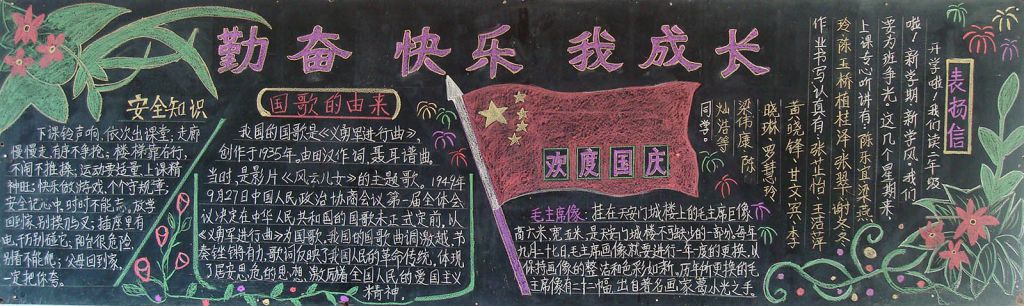 勤奋 快乐 我成长
安全知识
下课铃声响,依次出课堂,走廊
慢慢走,有序不争抢;楼梯靠右行,
不闹不推搡;运动要适量,上课精
神旺;快乐做游戏,个个守规章;
安全记心中,时时不能忘,放学
回到家,别摸刀与叉;插座里有
电,千万别碰它;阳台很危险,
别看不能爬;父母回到家,
一定把你夸。
国歌的由来
我国的国歌是《义勇军进行曲》,
创作于1935年。由田汉作词,聂耳谱曲。
当时是影片《风云儿女》的主题歌。1949年
9月27日中国人民政治协商会议第一届全体会
议决定在中华人民共和国的国歌未正式定前,以
《义勇军进行曲》为国歌。我国的国歌曲调激越,节
奏铿锵有力,歌词反映了我国人民的革命传统,体现
了居安思危的思想,激励着全国人民的爱国主义
精神。
欢度国庆
毛主席像:挂在天安门城楼上的毛主席巨像
高六米,宽五米,是天安门城楼不可缺少的一部分,每年
九月二十七日,毛主席画像就要进行一年一度的更换,以
保持画像的整洁和色彩如新。历年所更换的毛
主席像有二十二幅,出自著名画家葛小光之手。
表扬信
开学啦!我们读二年级
啦!新学期,新学风,我们
要为班争光。这几个星期来,
上课专心听讲有:陈乐宜、梁燕
玲、陈玉桥、植桂泽、张翠、谢冬冬
作业书写认真有:张芷怡、王洛萍
黄晓锋、甘文宾、李
晓琳、罗慧玲
梁伟康、陈
灿浩等
同学。